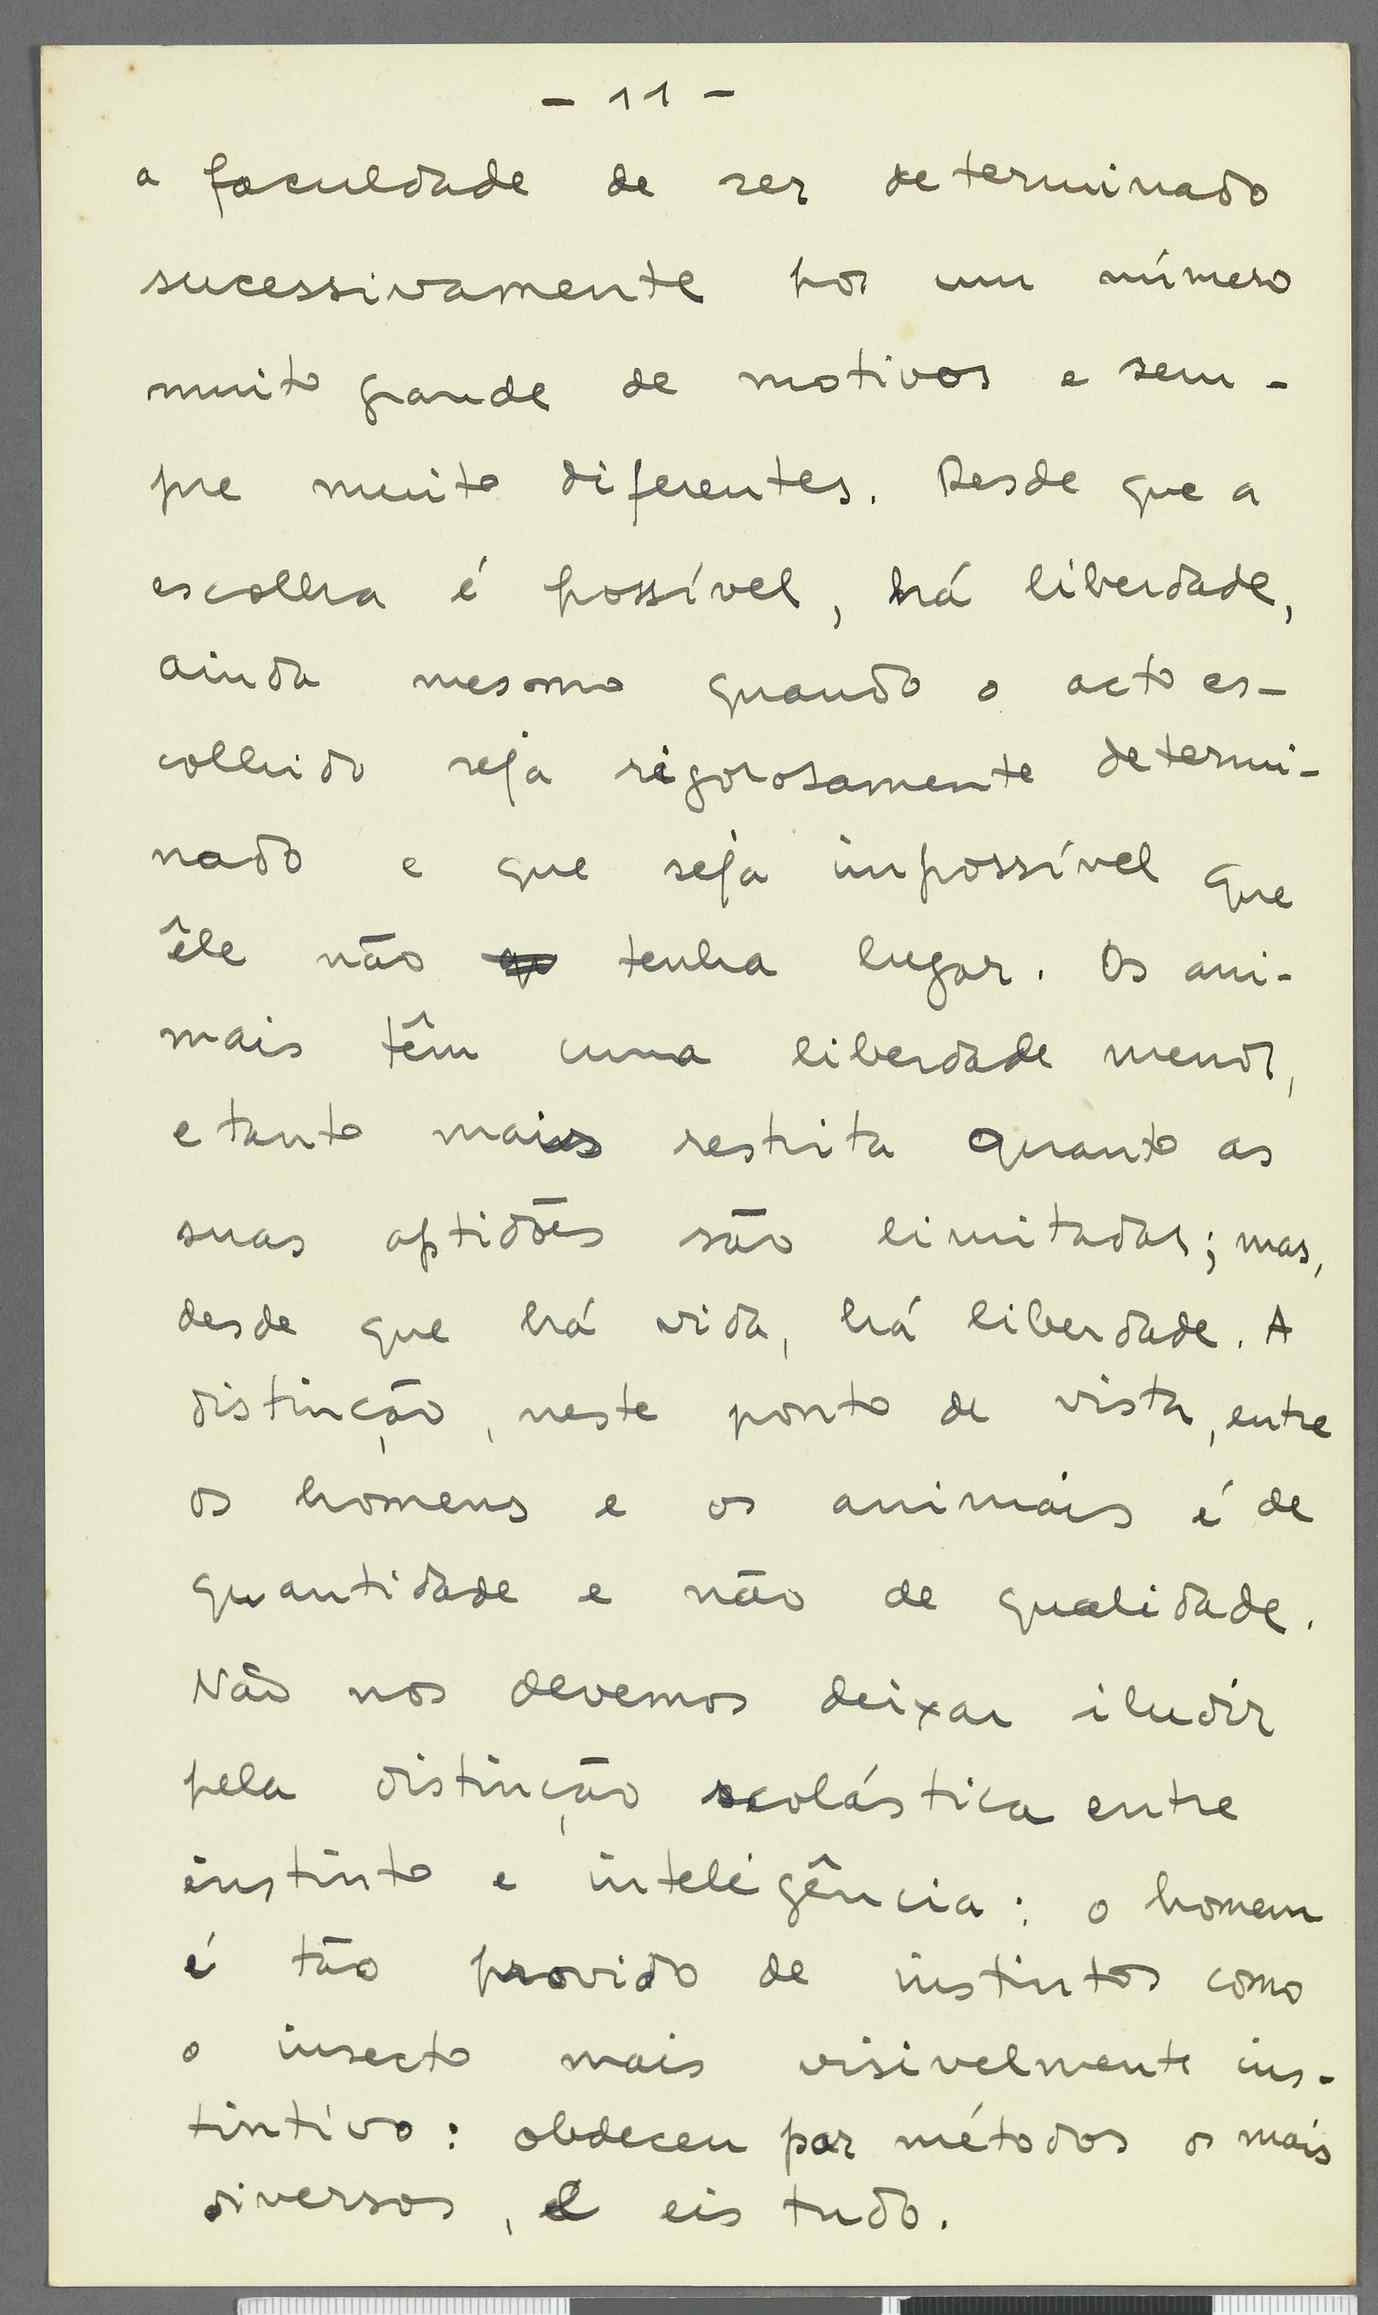 - 11 -
a faculdade de ser determinado
sucessivamente por um número
muito grande de motivos e sem-
pre muito diferentes. Desde que a
escolha é possível, há liberdade,
ainda mesmo quando o acto es-
colhido seja rigorosamente determi-
nado e que seja impossível que
êle não tenha lugar. Os ani-
mais têm uma liberdade menor,
e tanto mais restrita quanto as
suas aptidões são limitadas; mas,
desde que há vida, há liberdade. A
distinção, neste ponto de vista, entre
os homens e os animais é de
quantidade e não de qualidade.
Não nos devemos deixar iludir
pela distinção scolástica entre
instinto e inteligência: o homem
é tão provido de instintos como
o insecto mais visivelmente ins-
tintivo: obdeceu por métodos os mais
diversos, e eis tudo.